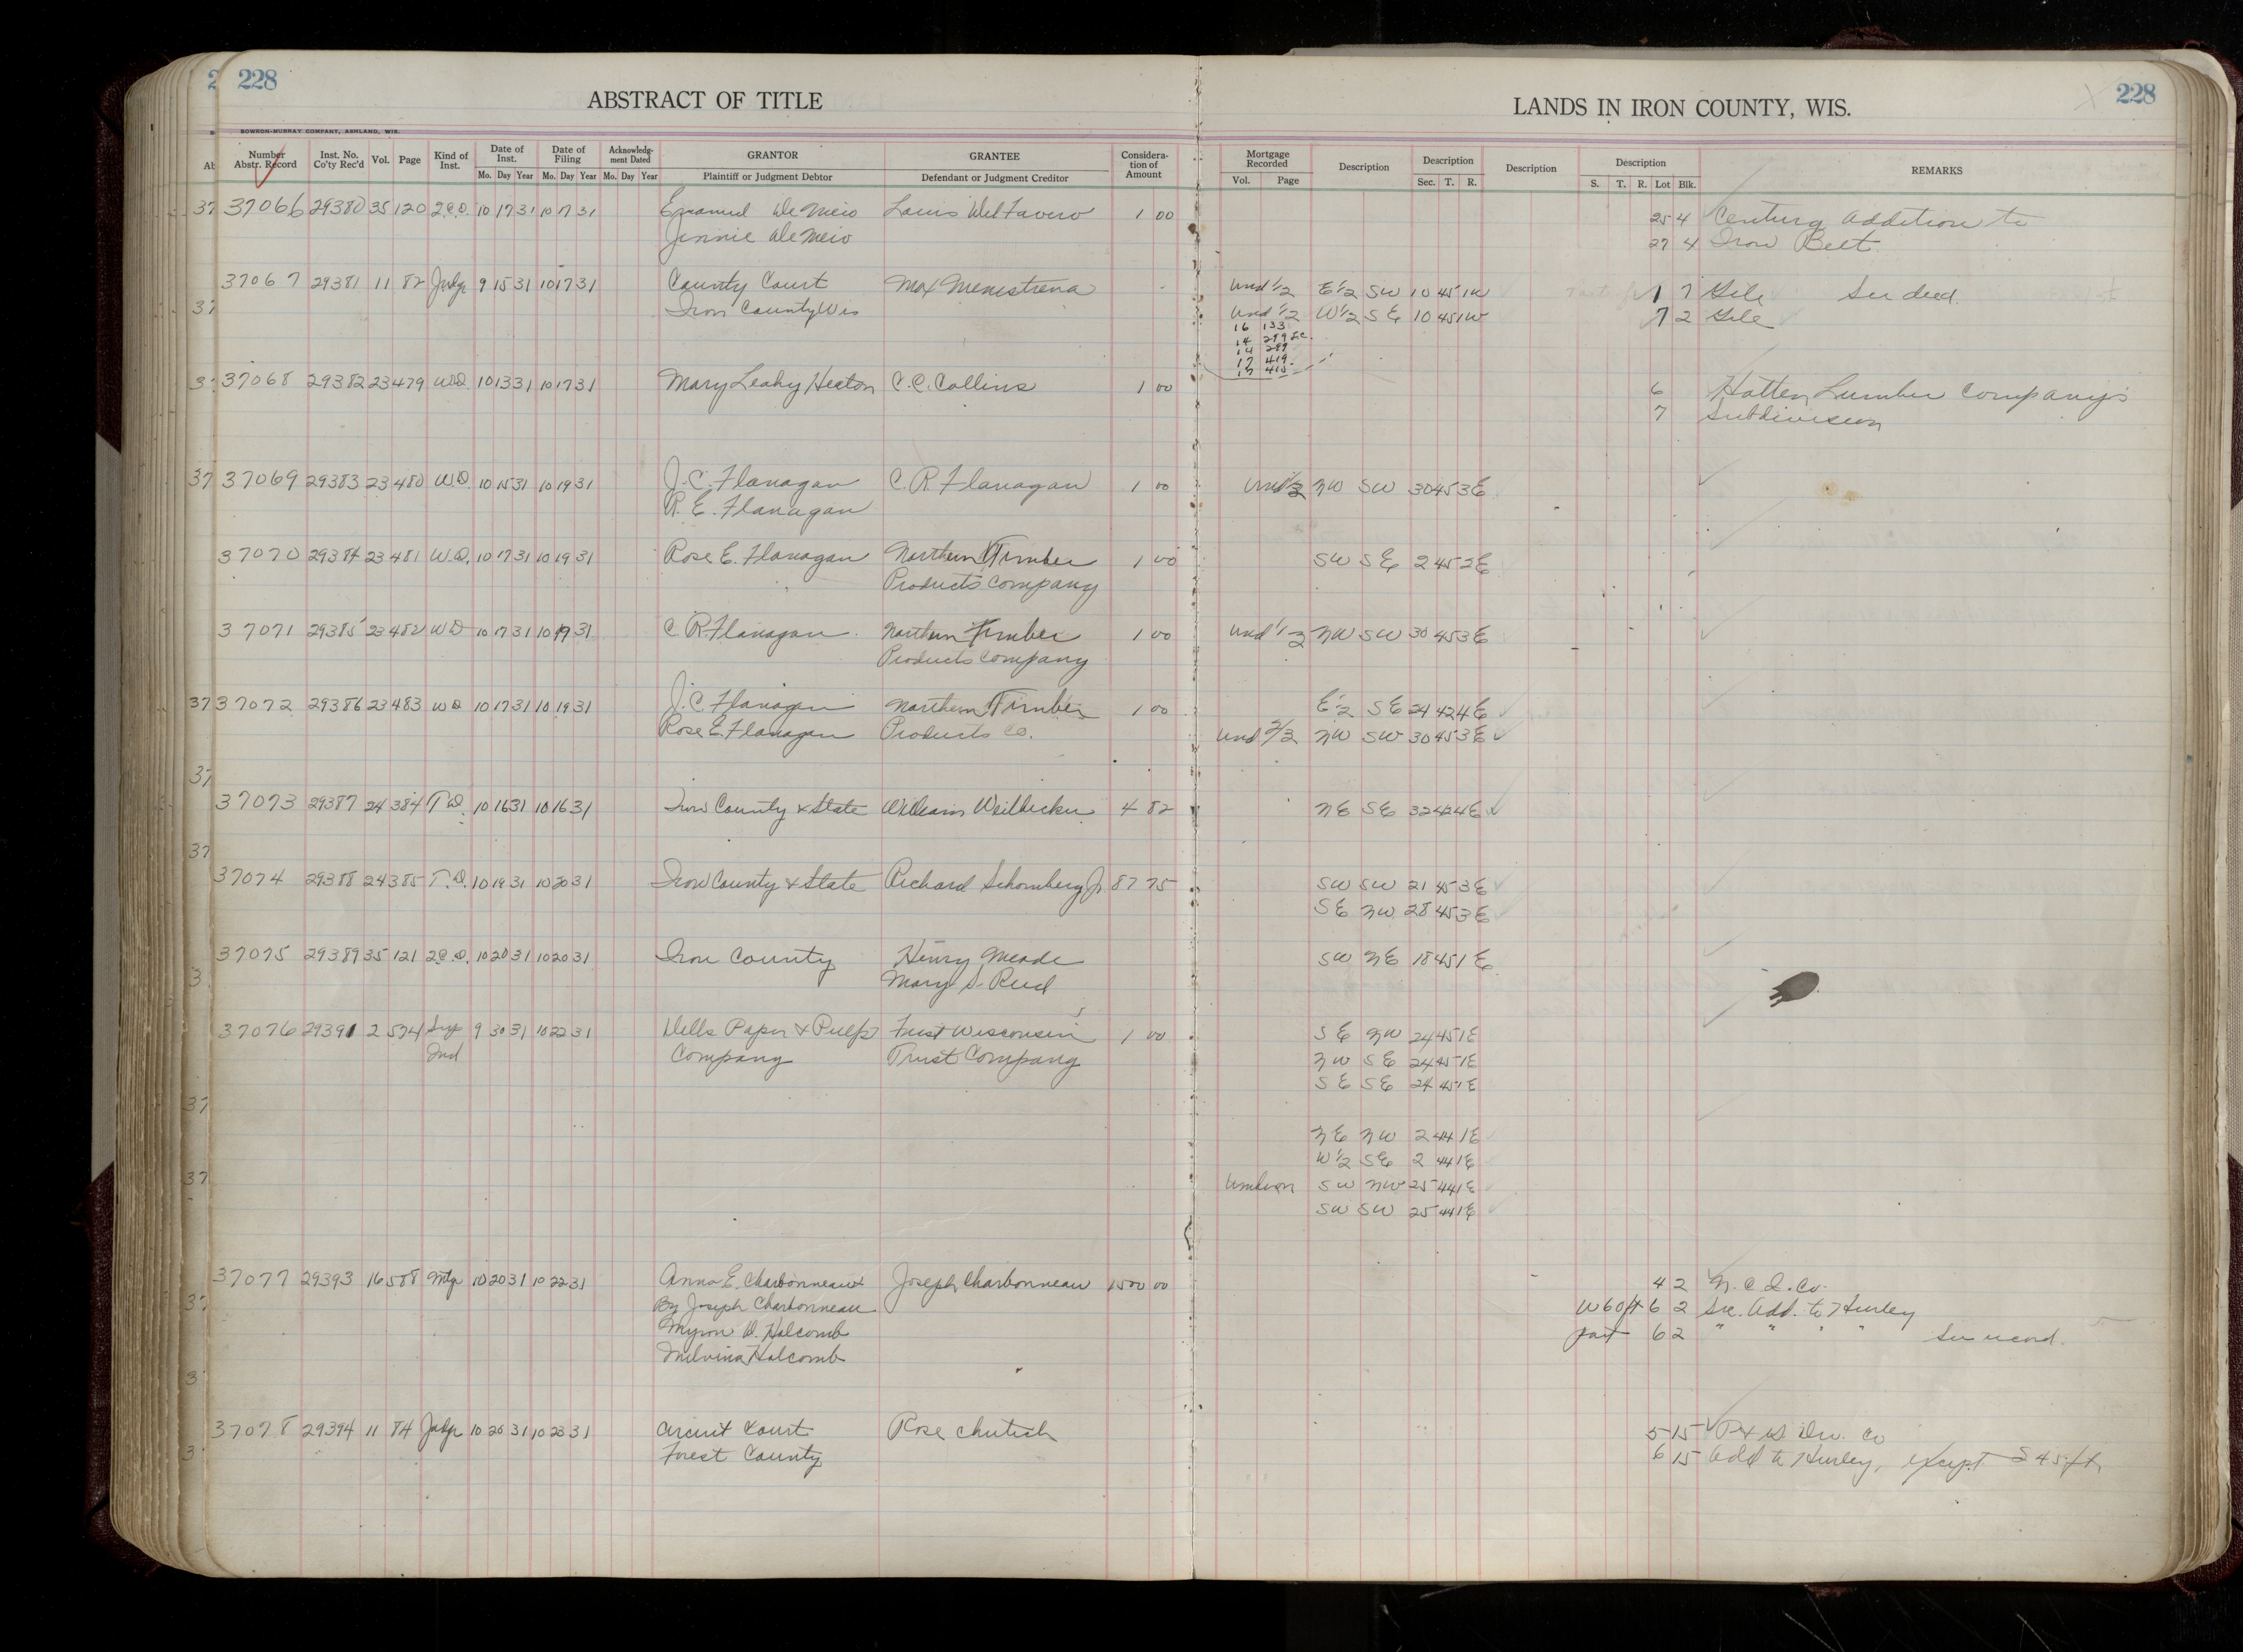 228
ABSTRACT OF TITLE
LANDS IN IRON COUNTY, WIS.
228
BOWRON-MURRAY COMPANY, ASHLAND, WIS.
Number Abstr. Record Inst. No. Co'ty Rec'd Vol. Page Kind of Inst. Date of Inst. Date of Filing Acknowledg-ment Dated GRANTOR GRANTEE Considera-tion of Amount Mortgage Recorded Description Description Description Description REMARKS
Mo. Day Year Mo. Day Year Mo. Day Year Plaintiff or Judgment Debtor Defendant or Judgment Creditor Vol. Page Sec. T. R. S. T. R. Lot Blk.
37066 29380 35 120 2.C.D. 10 17 31 10 17 31 Emanuel De Meio Louis Del Favero 1 00 25 4 Century Addition to
Jennie De Meio 27 4 Iron Belt
37067 29381 11 82 Judg 9 15 31 10 17 31 County Court Max Menestrena Und 1/2 E 1/2 SW 10 45 1W 1 7 Gile See deed.
Iron County Wis Und 1/2 W 1/2 SE 10 45 1W 7 2 Gile
16 133
14 289
17 419
37068 29382 23 479 WD. 10 13 31 10 17 31 Mary Leahy Heaton C.C. Collins 1 00 6 Hatten Lumber Company's
7 Subdivision
37069 29383 23 480 W.D. 10 15 31 10 19 31 J.C. Flanagan C.R. Flanagan 1 00 Und 1/3 NW SW 30 45 3E
R.E. Flanagan
37070 29384 23 481 W.D. 10 17 31 10 19 31 Rose E. Flanagan Northern Timber 1 00 SW SE 2 45 2E
Products Company
37071 29385 23 482 WD 10 17 31 10 19 31 C.R. Flanagan Northern Timber 1 00 Und 1/3 NW SW 30 45 3E
Products Company
37072 29386 23 483 WD 10 17 31 10 19 31 J.C. Flanagan Northern Timber 1 00 E 1/2 SE 24 42 4E
Rose E. Flanagan Products Co. Und 2/3 NW SW 30 45 3E
37073 29387 24 384 T.D. 10 16 31 10 16 31 Iron County & State William 4 82 NE SE 32 42 4E
37074 29388 24 385 T.D. 10 19 31 10 20 31 Iron County & State Richard Schomberg Jr 87 75 SW SW 21 45 3E
SE NW 28 45 3E
37075 29389 35 121 2C.D. 10 20 31 10 20 31 Iron County Henry Meade SW NE 18 45 1E
Mary S. Reed
37076 29391 2 524 Sup 9 30 31 10 22 31 Dells Paper & Pulp First Wisconsin 1 00 SE NW 24 45 1E
Ind Company Trust Company NW SE 24 45 1E
SE SE 24 45 1E
NE NW 2 44 1E
W 1/2 SE 2 44 1E
SW NW 25 44 1E
SW SW 25 44 1E
37077 29393 16 588 Mtg 10 20 31 10 22 31 Anna E. Charbonneau Joseph Charbonneau 1500 00 4 2 N.C.I. Co.
By Joseph Charbonneau W 60 ft 6 2 Sec. Add. to Hurley
Myron D. Holcomb part 6 2 " " " " See record.
Melvina Holcomb
37078 29394 11 84 Judge 10 20 31 10 23 31 Circuit Court Rose Chutich 5 15 Co
Forest County 6 15 Add to Hurley, except S 45 ft